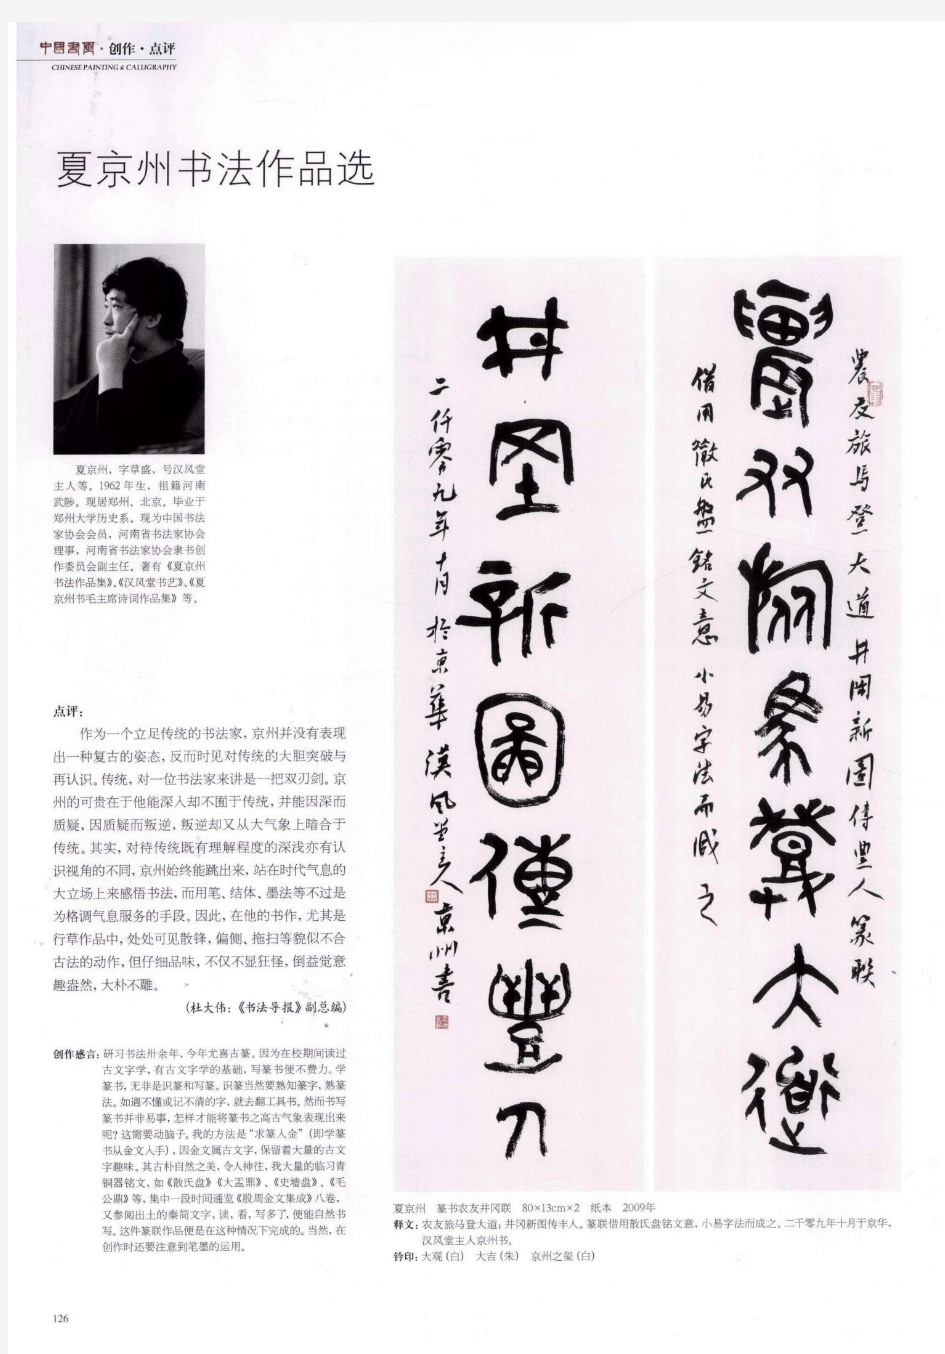 中國書画·创作·点评
CHINESE PAINTING & CALLIGRAPHY
夏京州书法作品选
夏京州，字草盛，号汉风堂
主人等。1962年生，祖籍河南
武陟。现居郑州、北京。毕业于
郑州大学历史系。现为中国书法
家协会会员，河南省书法家协会
理事，河南省书法家协会隶书创
作委员会副主任。著有《夏京州
书法作品集》、《汉风堂书艺》、《夏
京州书毛主席诗词作品集》等。
点评：
作为一个立足传统的书法家，京州并没有表现
出一种复古的姿态，反而时见对传统的大胆突破与
再认识。传统，对一位书法家来讲是一把双刃剑。京
州的可贵在于他能深入却不囿于传统，并能因深而
质疑，因质疑而叛逆，叛逆却又从大气象上暗合于
传统。其实，对待传统既有理解程度的深浅亦有认
识视角的不同，京州始终能跳出来，站在时代气息的
大立场上来感悟书法，而用笔、结体、墨法等不过是
为格调气息服务的手段。因此，在他的书作，尤其是
行草作品中，处处可见散锋，偏侧、拖扫等貌似不合
古法的动作，但仔细品味，不仅不显狂怪，倒益觉意
趣盎然，大朴不雕。
（杜大伟：《书法导报》副总编）
创作感言：研习书法卅余年，今年尤喜古篆。因为在校期间读过
古文字学，有古文字学的基础，写篆书便不费力。学
篆书，无非是识篆和写篆。识篆当然要熟知篆字，熟篆
法。如遇不懂或记不清的字，就去翻工具书。然而书写
篆书并非易事，怎样才能将篆书之高古气象表现出来
呢？这需要动脑子。我的方法是“求篆入金”（即学篆
书从金文入手），因金文属古文字，保留着大量的古文
字趣味。其古朴自然之美，令人神往，我大量的临习青
铜器铭文，如《散氏盘》《大盂鼎》、《史墙盘》、《毛
公鼎》等，集中一段时间通览《殷周金文集成》八卷，
又参阅出土的秦简文字，读，看，写多了，便能自然书
写。这件篆联作品便是在这种情况下完成的。当然，在
创作时还要注意到笔墨的运用。
農友旅马登大道井岡新圖傳豊人篆联
農友旅马登大道
借用散氏盤銘文意小易字法而成之
井岡新圖傳豊人
二仟零九年十月於京華漢风堂主人京州書
夏京州 篆书农友井冈联 80×13cm×2 纸本 2009年
释文：农友旅马登大道；井冈新图传丰人。篆联借用散氏盘铭文意，小易字法而成之。二千零九年十月于京华，
汉风堂主人京州书。
钤印：大观（白） 大吉（朱） 京州之玺（白）
126